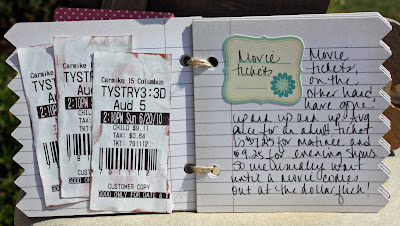 Carmike 15 Columbus
TYSTRY3:3D
Aud 5
2:10PM Sun 6/20/10
CHILD $9.11
TAX: $0.64
TKT: 791112
CUSTOMER COPY
GOOD ONLY FOR DATE &
Carmike
TYST
Aud
2:10PM
Carmike
TYST
2:10P
Movie
tickets
Movie
tickets,
on the
other hand,
have gone
up and up and up. Avg
price for an adult ticket
is for matinee and
$9.25 for evening shows.
So we usually wait
until a movie comes
out at the dollar flick!